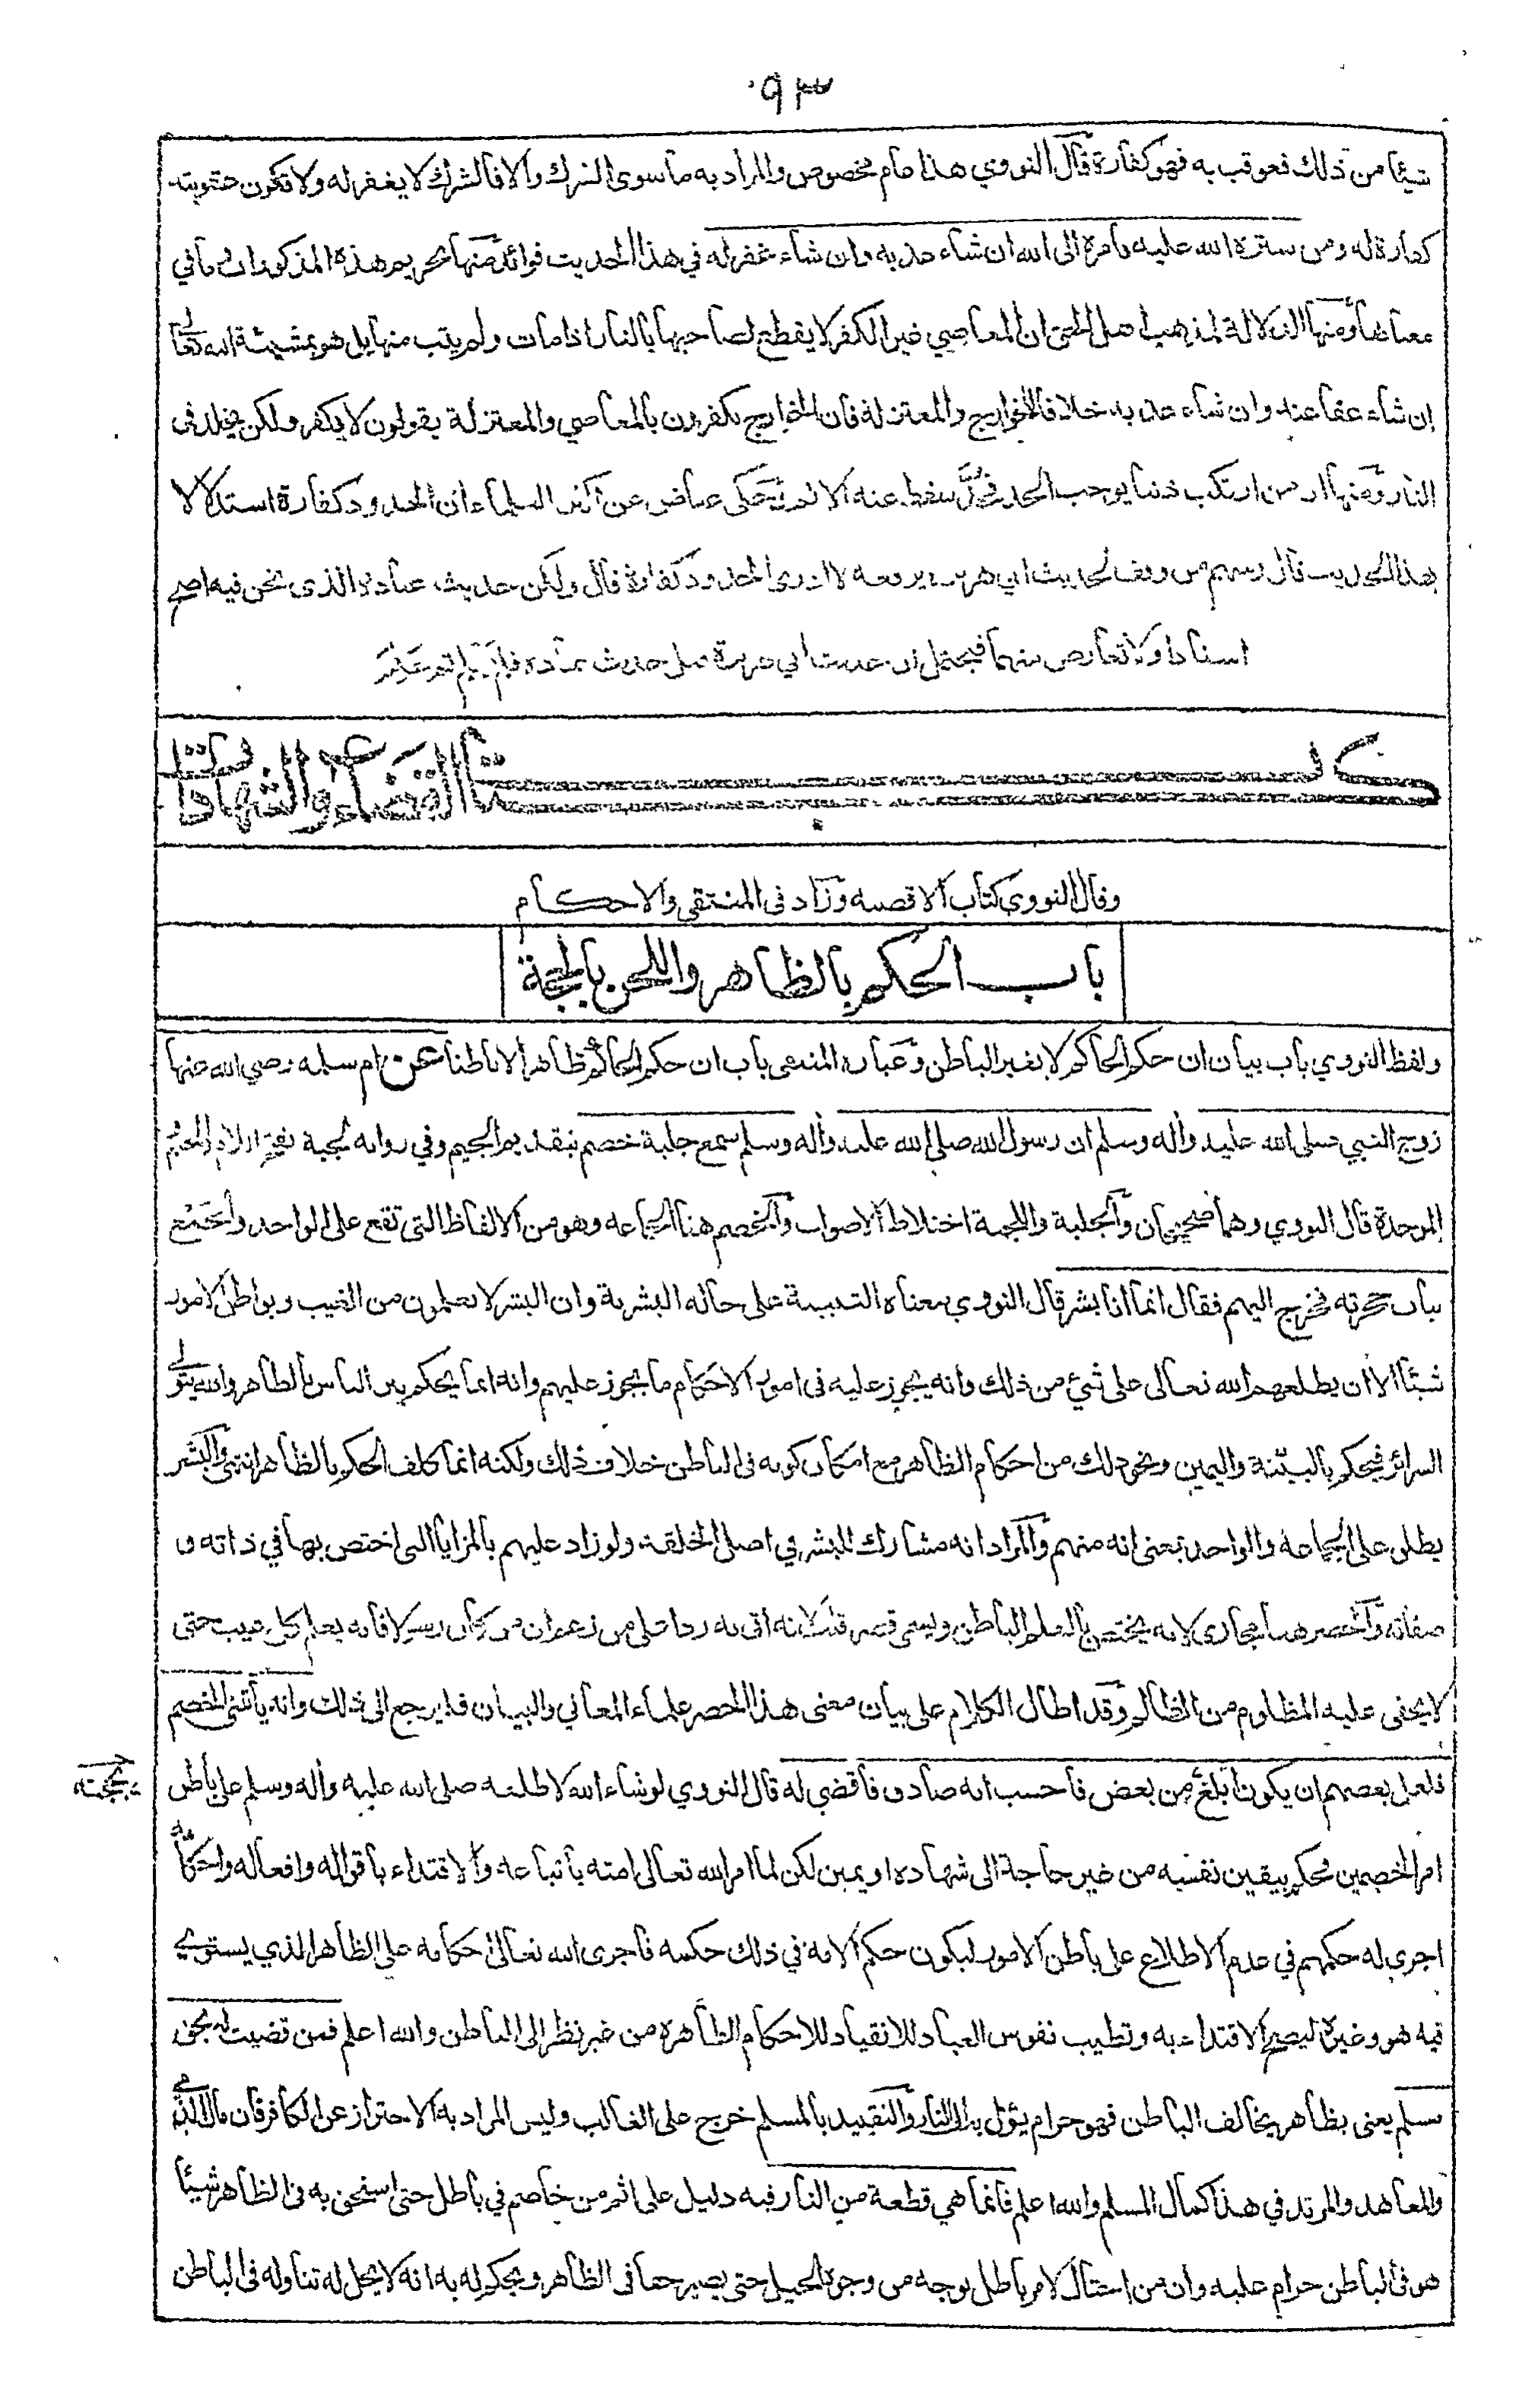 ٩٣
شيئا من ذلك فعوقب به فهو كفارة قال النووي هذا عام مخصوص والمراد به ما سوى الشرك والا فالشرك لا يغفر له ولا تكون عقوبته
كفارة له ومن ستره الله عليه فامره الى الله ان شاء عذبه وان شاء غفر له في هذا الحديث فوائد منها تحريم هذه المذكورات وما في
معناها ومنها الدلالة لمذهب اهل الحق ان المعاصي غير الكفر لا يقطع لصاحبها بالنار اذا مات ولم يتب منها بل هو بمشيئة الله تعالى
ان شاء عفا عنه وان شاء عذبه خلافا للخوارج والمعتزلة فان الخوارج يكفرون بالمعاصي والمعتزلة يقولون لا يكفر ولكن يخلد في
النار ومنها ان من ارتكب ذنبا يوجب الحد فحد سقط عنه الاثم حكى عياض عن اكثر العلماء ان الحدود كفارة استدلالا
بهذا الحديث قال ومنهم من وقف لحديث ابي هريرة يرفعه لا ادري الحدود كفارة قال ولكن حديث عبادة الذي نحن فيه اصح
اسنادا ولا تعارض بينهما فيحتمل ان حديث ابي هريرة قبل حديث عبادة فلم يعلم ثم علم
كتاب القضاء والشهادات
وقال النووي كتاب الاقضية وزاد في المنتقى والاحكام
باب الحكم بالظاهر واللحن بالحجة
ولفظ النووي باب بيان ان حكم الحاكم لا يغير الباطن وعبارة المنتقى باب ان حكم الحاكم ظاهرا لا باطنا عن ام سلمة رضي الله عنها
زوج النبي صلى الله عليه وآله وسلم ان رسول الله صلى الله عليه وآله وسلم سمع جلبة خصم بتقديم الجيم وفي رواية لجبة بتقديم اللام والجيم
الموحدة قال النووي وهما صحيحان والجلبة واللجبة اختلاط الاصوات والخصم هنا الجماعة وهو من الالفاظ التي تقع على الواحد والجمع
بباب حجرته فخرج اليهم فقال انما انا بشر قال النووي معناه التنبيه على حالة البشرية وان البشر لا يعلمون من الغيب وبواطن الامور
شيئا الا ان يطلعهم الله تعالى على شيء من ذلك وانه يجوز عليه في امور الاحكام ما يجوز عليهم وانه انما يحكم بين الناس بالظاهر والله يتولى
السرائر فيحكم بالبينة واليمين ونحو ذلك من احكام الظاهر مع امكان كونه في الباطن خلاف ذلك ولكنه انما كلف الحكم بالظاهر انتهى والبشر
يطلق على الجماعة والواحد بمعنى انه منهم والمراد انه مشارك للبشر في اصل الخلقة ولو زاد عليهم بالمزايا التي اختص بها في ذاته و
صفاته والحصر هنا مجازي لانه يختص بالعلم الباطن ويسمى قصر قلب لانه اتى به ردا على من زعم ان من كان رسولا فانه يعلم كل غيب حتى
لا يخفى عليه المظلوم من الظالم وقد اطال الكلام على بيان معنى هذا الحصر علماء المعاني والبيان فليرجع الى ذلك وانه يأتيني الخصم
فلعل بعضهم ان يكون ابلغ من بعض فاحسب انه صادق فاقضي له قال النووي لو شاء الله لاطلعه صلى الله عليه وآله وسلم على باطن
بحجته
امر الخصمين فحكم بيقين نفسه من غير حاجة الى شهادة او يمين لكن لما امر الله تعالى امته باتباعه والاقتداء باقواله وافعاله واحكامه
اجرى له حكمهم في عدم الاطلاع على باطن الامور ليكون حكم الامة في ذلك حكمه فاجرى الله تعالى احكامه على الظاهر الذي يستوي
فيه هو وغيره ليصح الاقتداء به وتطيب نفوس العباد للانقياد للاحكام الظاهرة من غير نظر الى الباطن والله اعلم فمن قضيت له بحق
مسلم يعني بظاهر يخالف الباطن فهو حرام يؤل به الى النار والتقييد بالمسلم خرج على الغالب وليس المراد به الاحتراز عن الكافر فان مال الذمي
والمعاهد والمرتد في هذا كمال المسلم والله اعلم فانما هي قطعة من النار فيه دليل على اثم من خاصم في باطل حتى استحق به في الظاهر شيئا
هو في الباطن حرام عليه وان من احتال لامر باطل بوجه من وجوه الحيل حتى يصير حقا في الظاهر ويحكم له به انه لا يحل له تناوله في الباطن